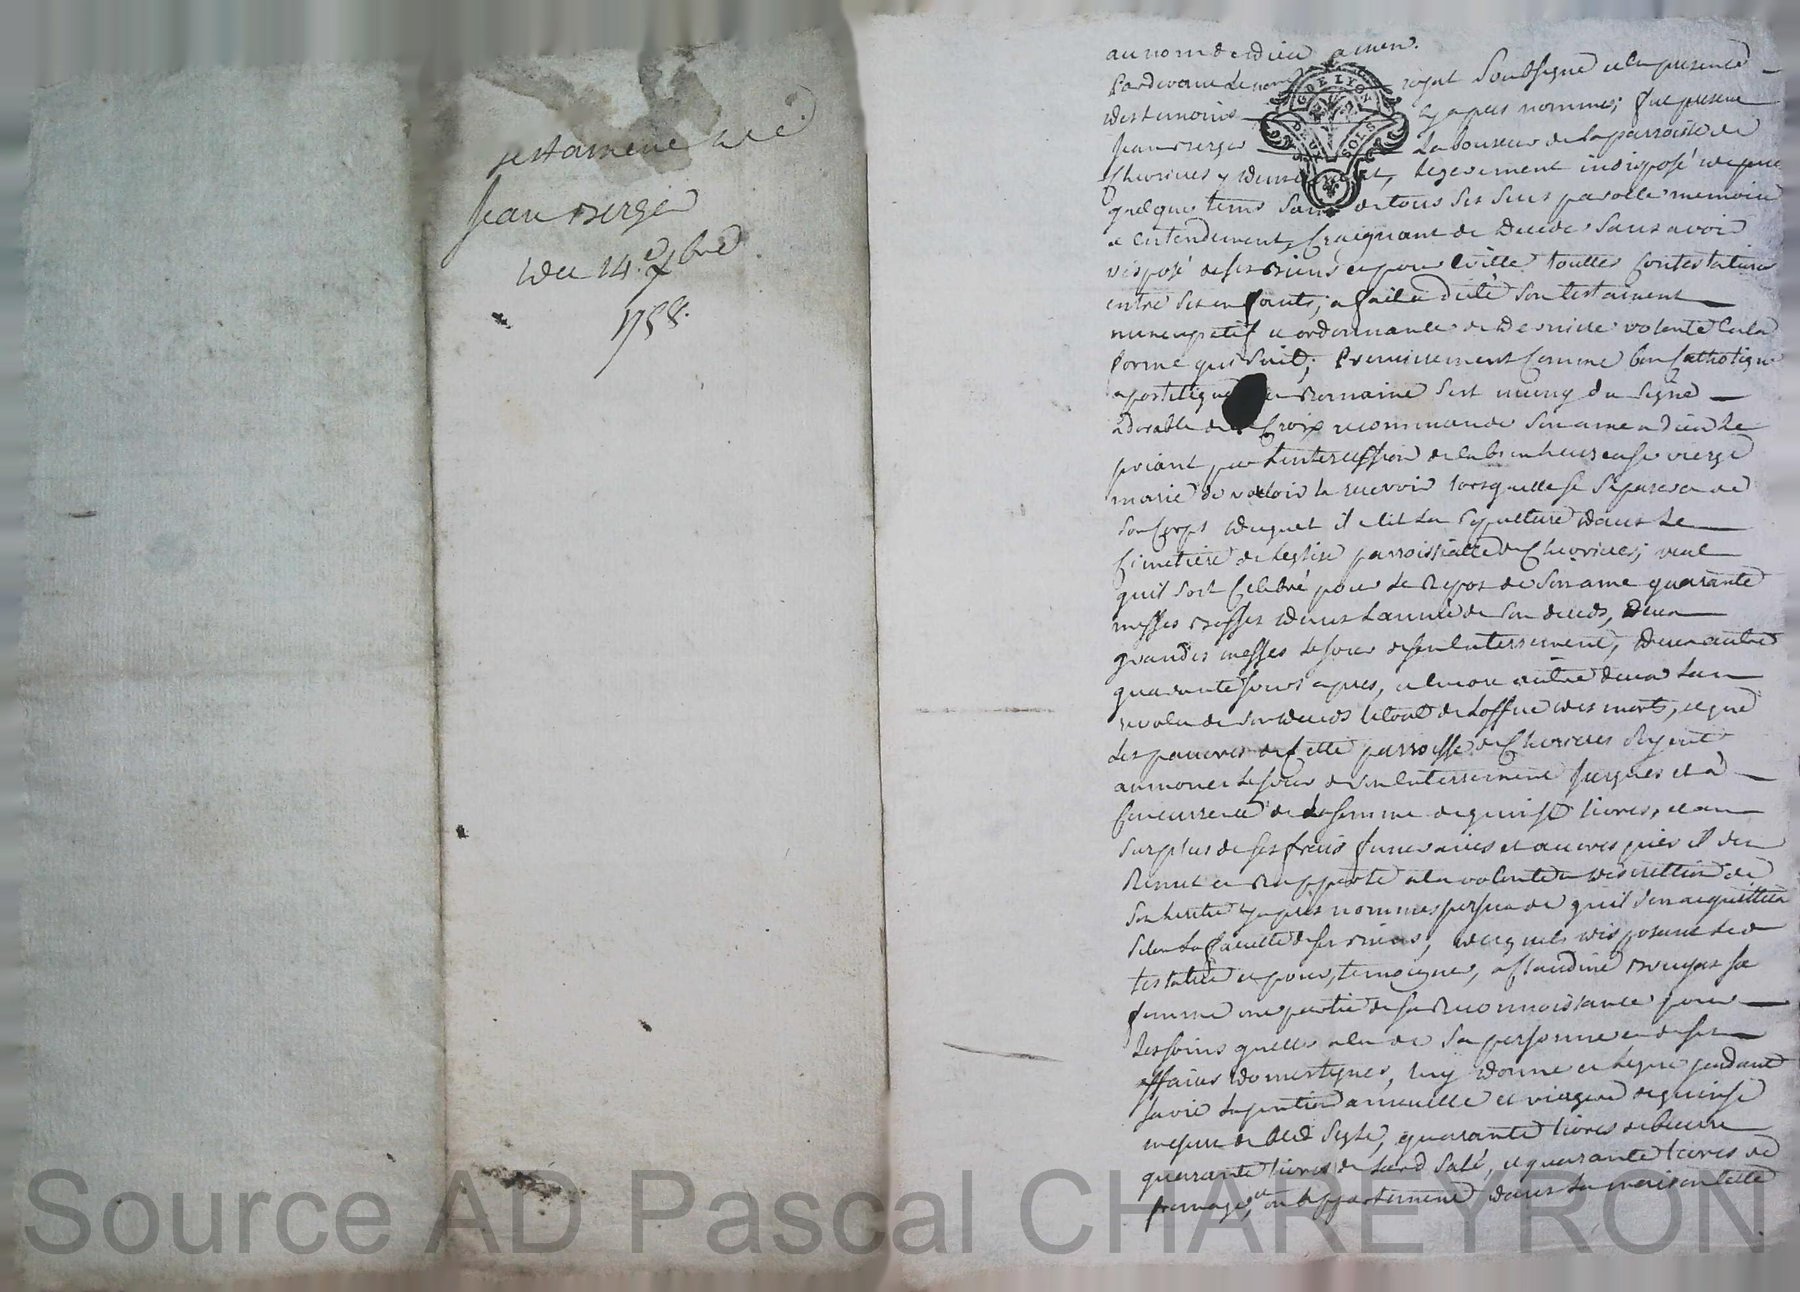 testament de
Jean Berger
du 14.e 7bre
1758.
au nom de dieu amen.
Pardevant le no royal Soubsigné et en presence
des temoins cy apres nommes; fut present
Jean Berger Laboureur de la parroisse de
Chevrieres y dem t, legerement indisposé depuis
quelque tems Sain de tous ses sens parolle memoire
et entendement, Craignant de deceder Sans avoir
disposé de ses Biens et pour Eviter touttes Contestations
entre ses enfants, a fait et dicté Son testament
nuncupatif et ordonnance de derniere volonté En la
forme qui Suit; Premierement Comme bon Catholique
apostolique et Romaine s'est muny du Signe
adorable de la Croix recommande Son ame a dieu le
priant par l'intercession de la bienheureuse vierge
marie de vouloir la recevoir lorsquelle se Separera de
Son Corps duquel il elit la Sepulture dans le
Cimetiere de l'eglise parroissialle de Chevrieres; veut
quil soit Celebré pour le Repos de Son ame quarante
messes Basses dans l'année de Son deceds, deux
grandes messes le jour de son Enterrement, deux autres
quarante jours apres, et encore autre deux l'an
revolu de Son deceds le tout de l'office des morts, et que
les pauvres de Cette parroisse de Chevrieres Soyent
aumonés le jour de Son Enterrement Jusques et à
Concurrence de la somme de quinse livres, et au
Surplus de ses frais funeraires et œuvres pies il s'en
Remet et Rapporte a la volonté et discrettion de
Son heritier cy apres nommé persuadé quil s'en acquittera
Selon la faculté de ses Biens, desquels disposant led
testateur et pour temoigner a Claudine Bruyas sa
femme une partie de sa Reconnoissance pour
les soins quelle a eu de Sa personne et de ses
affaires domestiques, luy donne et legue pendant
sa vie la pention annuelle et viagere de quinse
mesures de bled Segle, quarante livres de beurre
quarante livres de lard Salé, et quarante livres de
fromage, un appartement dans la maison telle
Source AD Pascal CHAREYRON